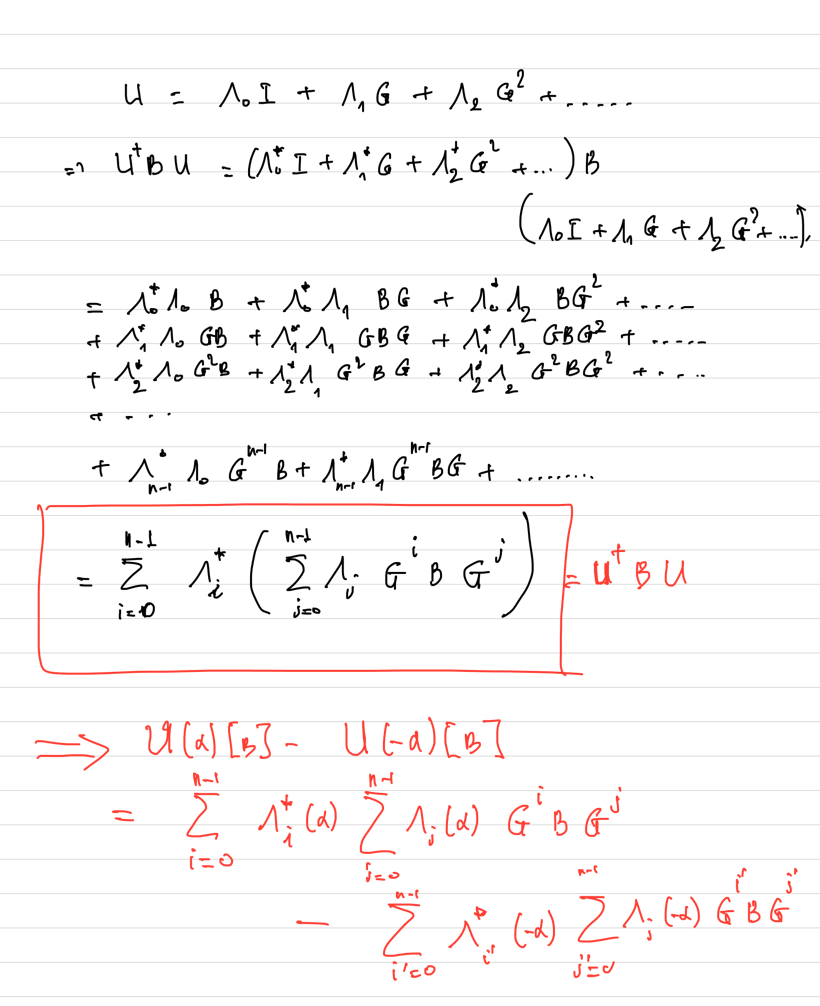 U = Λ₀ I + Λ₁ G + Λ₂ G² + .....
=> U†B U = (Λ₀* I + Λ₁* G + Λ₂* G² + ...) B
(Λ₀ I + Λ₁ G + Λ₂ G² + ....).
= Λ₀* Λ₀ B + Λ₀* Λ₁ BG + Λ₀* Λ₂ BG² + .....
+ Λ₁* Λ₀ GB + Λ₁* Λ₁ GBG + Λ₁* Λ₂ GBG² + .....
+ Λ₂* Λ₀ G²B + Λ₂* Λ₁ G²BG + Λ₂* Λ₂ G²BG² + ....
+ ....
+ Λ*_{n-1} Λ₀ G^{n-1} B + Λ*_{n-1} Λ₁ G^{n-1} BG + .........
= ∑_{i=0}^{n-1} Λ_i* ( ∑_{j=0}^{n-1} Λ_j G^i B G^j ) = U† B U
⟹ U(α)[B] - U(-α)[B]
= ∑_{i=0}^{n-1} Λ_i*(α) ∑_{j=0}^{n-1} Λ_j(α) G^i B G^j
- ∑_{i'=0}^{n-1} Λ*_{i'}(-α) ∑_{j'=0}^{n-1} Λ_j(-α) G^{i'} B G^{j'}